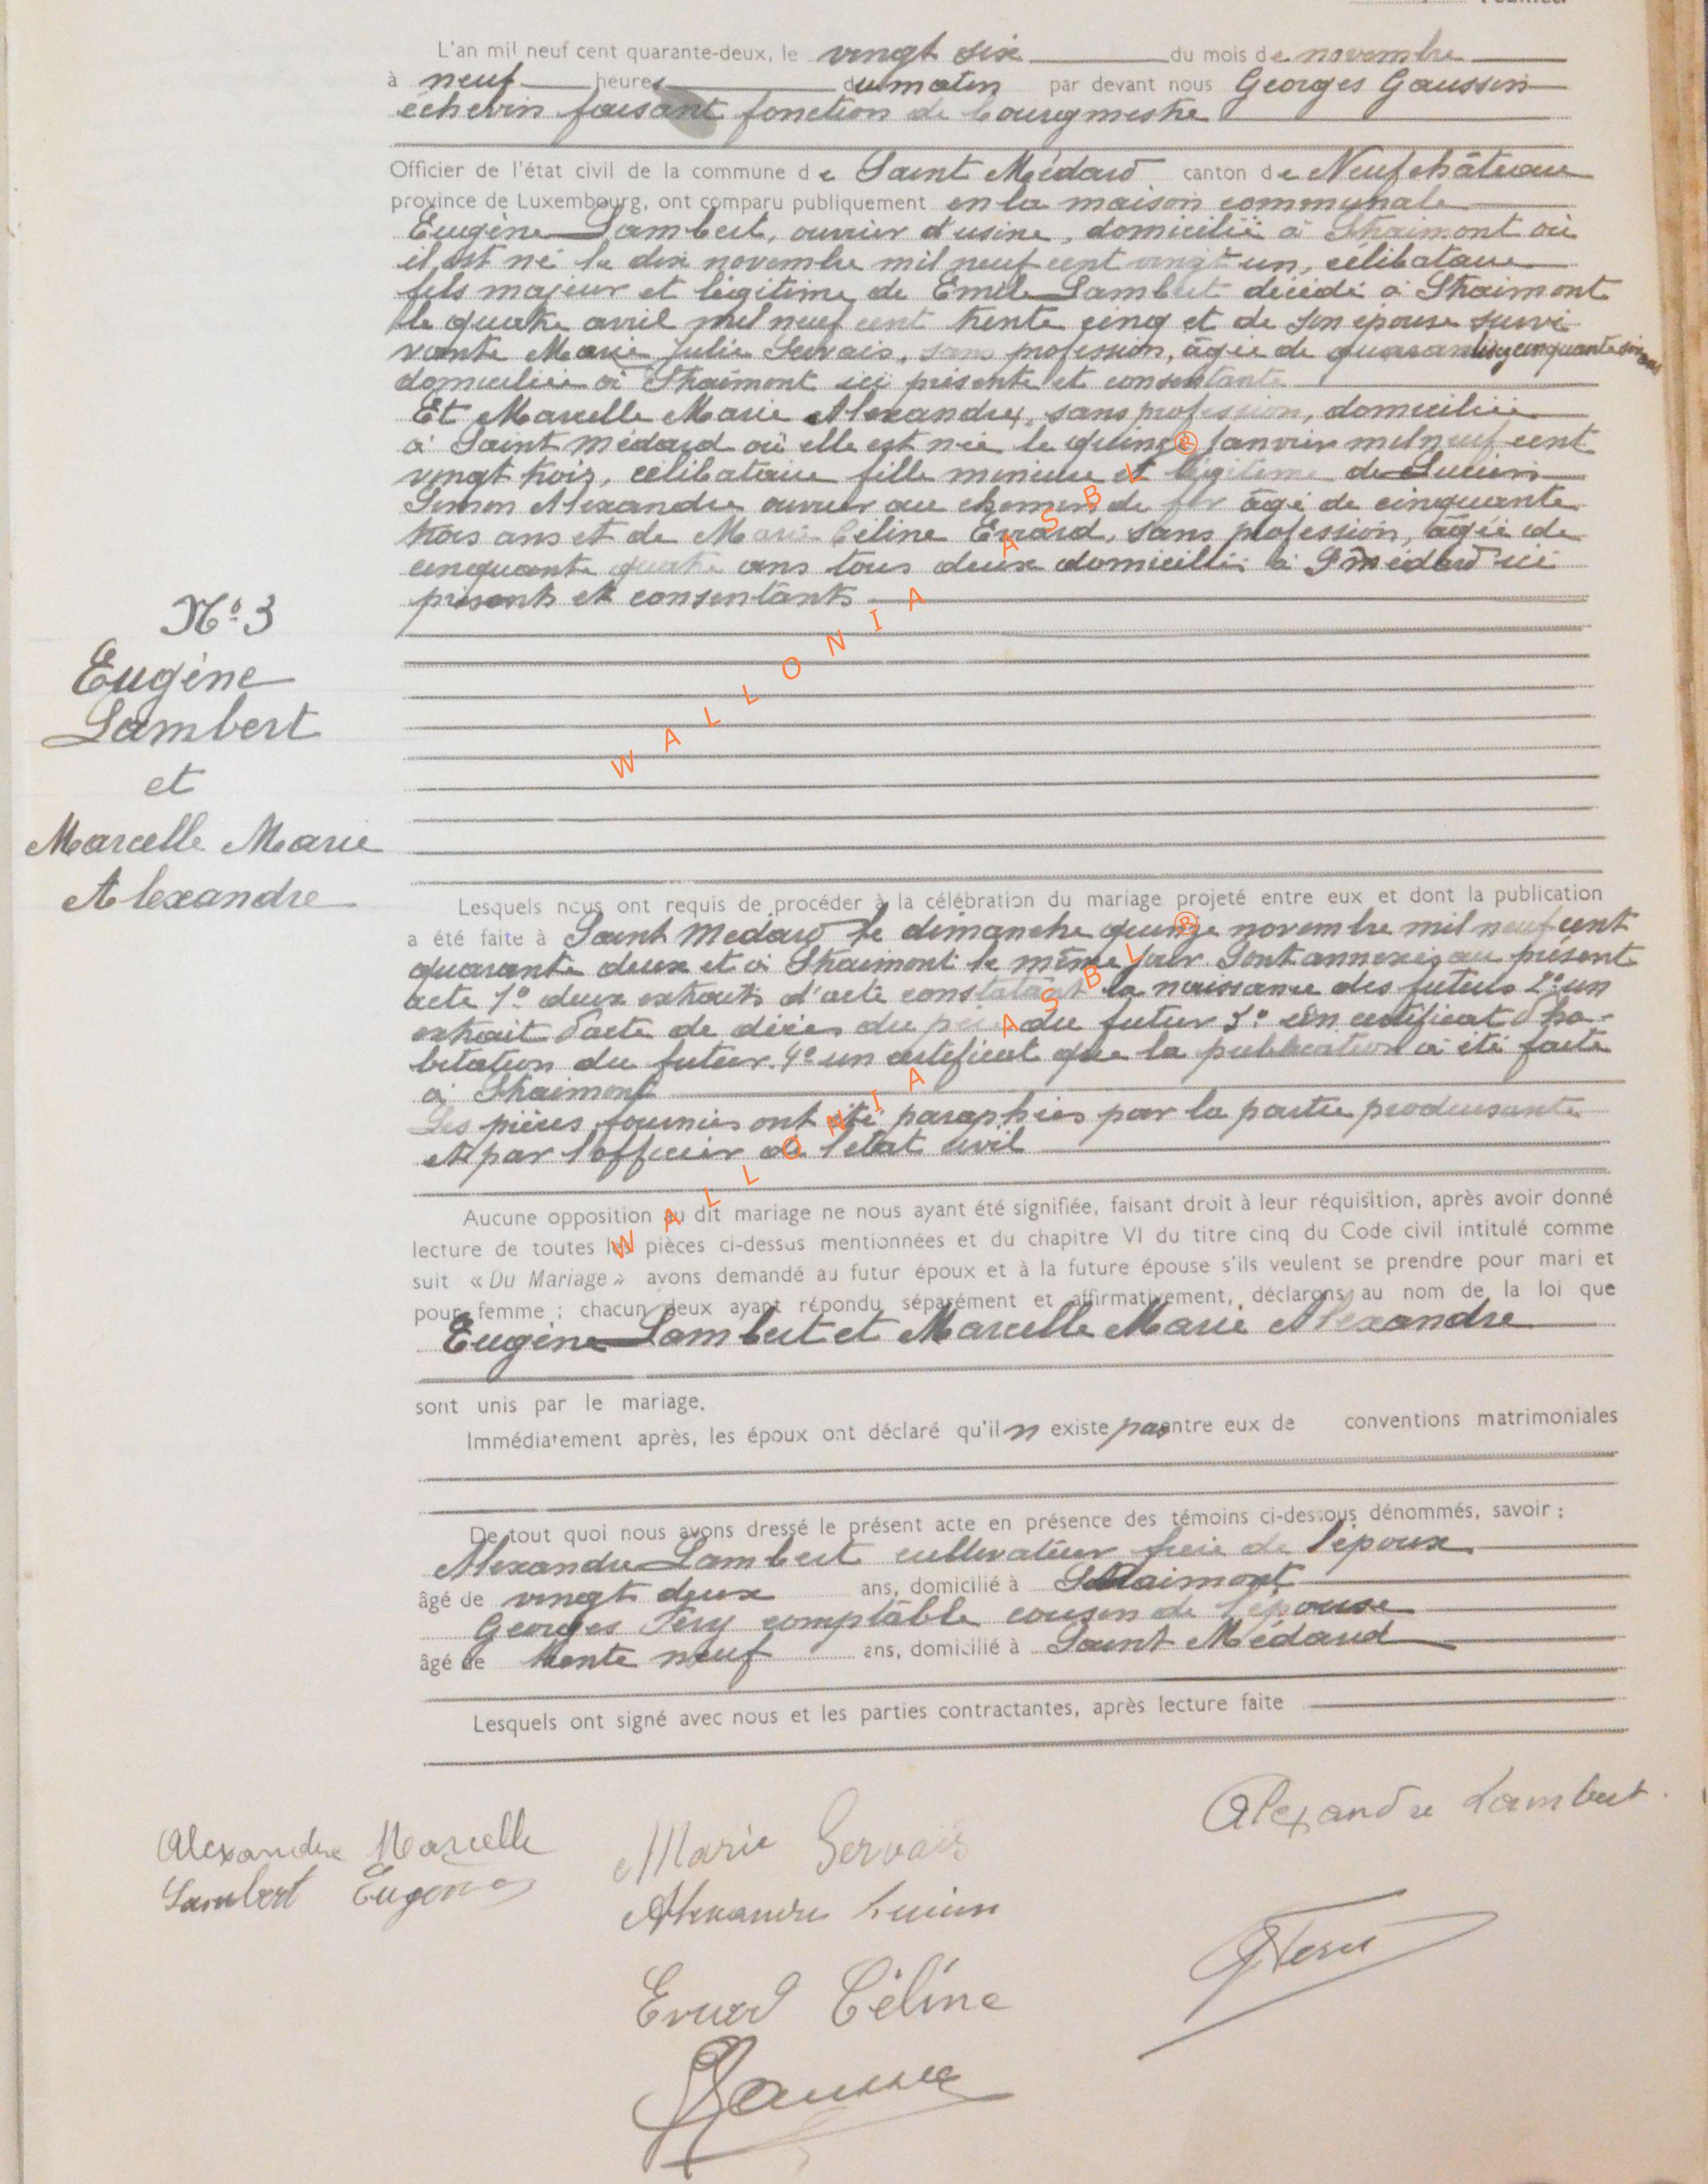 L'an mil neuf cent quarante-deux, le vingt six du mois de novembre
à neuf heures du matin par devant nous Georges Gaussin
échevin faisant fonction de bourgmestre
Officier de l'état civil de la commune de Saint Médard canton de Neufchâteau
province de Luxembourg, ont comparu publiquement en la maison communale
Eugène Lambert, ouvrier d'usine, domicilié à Straimont où
il est né le dix novembre mil neuf cent vingt un, célibataire
fils majeur et légitime de Emile Lambert décédé à Straimont
le quatre avril mil neuf cent trente cinq et de son épouse survi
vante Marie Julie Servais, sans profession, âgée de cinquante
domiciliée à Straimont ici présente et consentante
Et Marcelle Marie Alexandre, sans profession, domiciliée
à Saint Médard où elle est née le quinze janvier mil neuf cent
vingt trois, célibataire fille mineure et légitime de Lucien
Simon Alexandre ouvrier au chemin de fer âgé de cinquante
trois ans et de Marie Céline Evrard, sans profession, âgée de
cinquante quatre ans tous deux domiciliés à St médard ici
présents et consentants
N° 3
Eugène
Lambert
et
Marcelle Marie
Alexandre
Lesquels nous ont requis de procéder à la célébration du mariage projeté entre eux et dont la publication
a été faite à Saint Médard le dimanche quinze novembre mil neuf cent
quarante deux et à Straimont le même jour. Sont annexés au présent
acte 1° deux extraits d'acte constatant la naissance des futurs 2° un
extrait d'acte de décès du père du futur 3° un certificat d'ha-
bitation du futur. 4° un certificat que la publication a été faite
à Straimont
Les pièces fournies ont été paraphées par la partie produisante
et par l'officier de l'état civil
Aucune opposition au dit mariage ne nous ayant été signifiée, faisant droit à leur réquisition, après avoir donné
lecture de toutes les pièces ci-dessus mentionnées et du chapitre VI du titre cinq du Code civil intitulé comme
suit « Du Mariage » avons demandé au futur époux et à la future épouse s'ils veulent se prendre pour mari et
pour femme ; chacun deux ayant répondu séparément et affirmativement, déclarons au nom de la loi que
Eugène Lambert et Marcelle Marie Alexandre
sont unis par le mariage.
Immédiatement après, les époux ont déclaré qu'il n existe pas entre eux de conventions matrimoniales
De tout quoi nous avons dressé le présent acte en présence des témoins ci-dessous dénommés, savoir :
Alexandre Lambert cultivateur frère de l'époux
âgé de vingt deux ans, domicilié à Straimont
Georges Féry comptable cousin de l'épouse
âgé de trente neuf ans, domicilié à Saint Médard
Lesquels ont signé avec nous et les parties contractantes, après lecture faite
Alexandre Lambert
Alexandre Marcelle
Marie Servais
Lambert Eugène
Alexandre Lucien
Evrard Céline
WALLONIA ASBL ®
WALLONIA ASBL ®